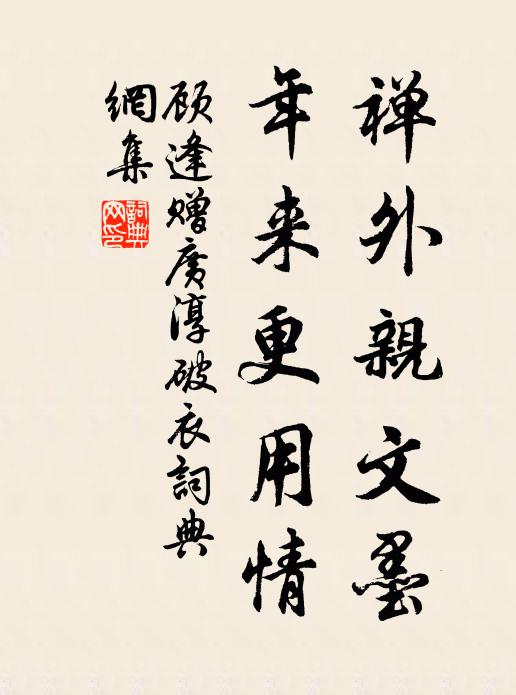 禅外親文墨
年来更用情
顾逢赠廣淳破衣詞典
網集
詞典網印